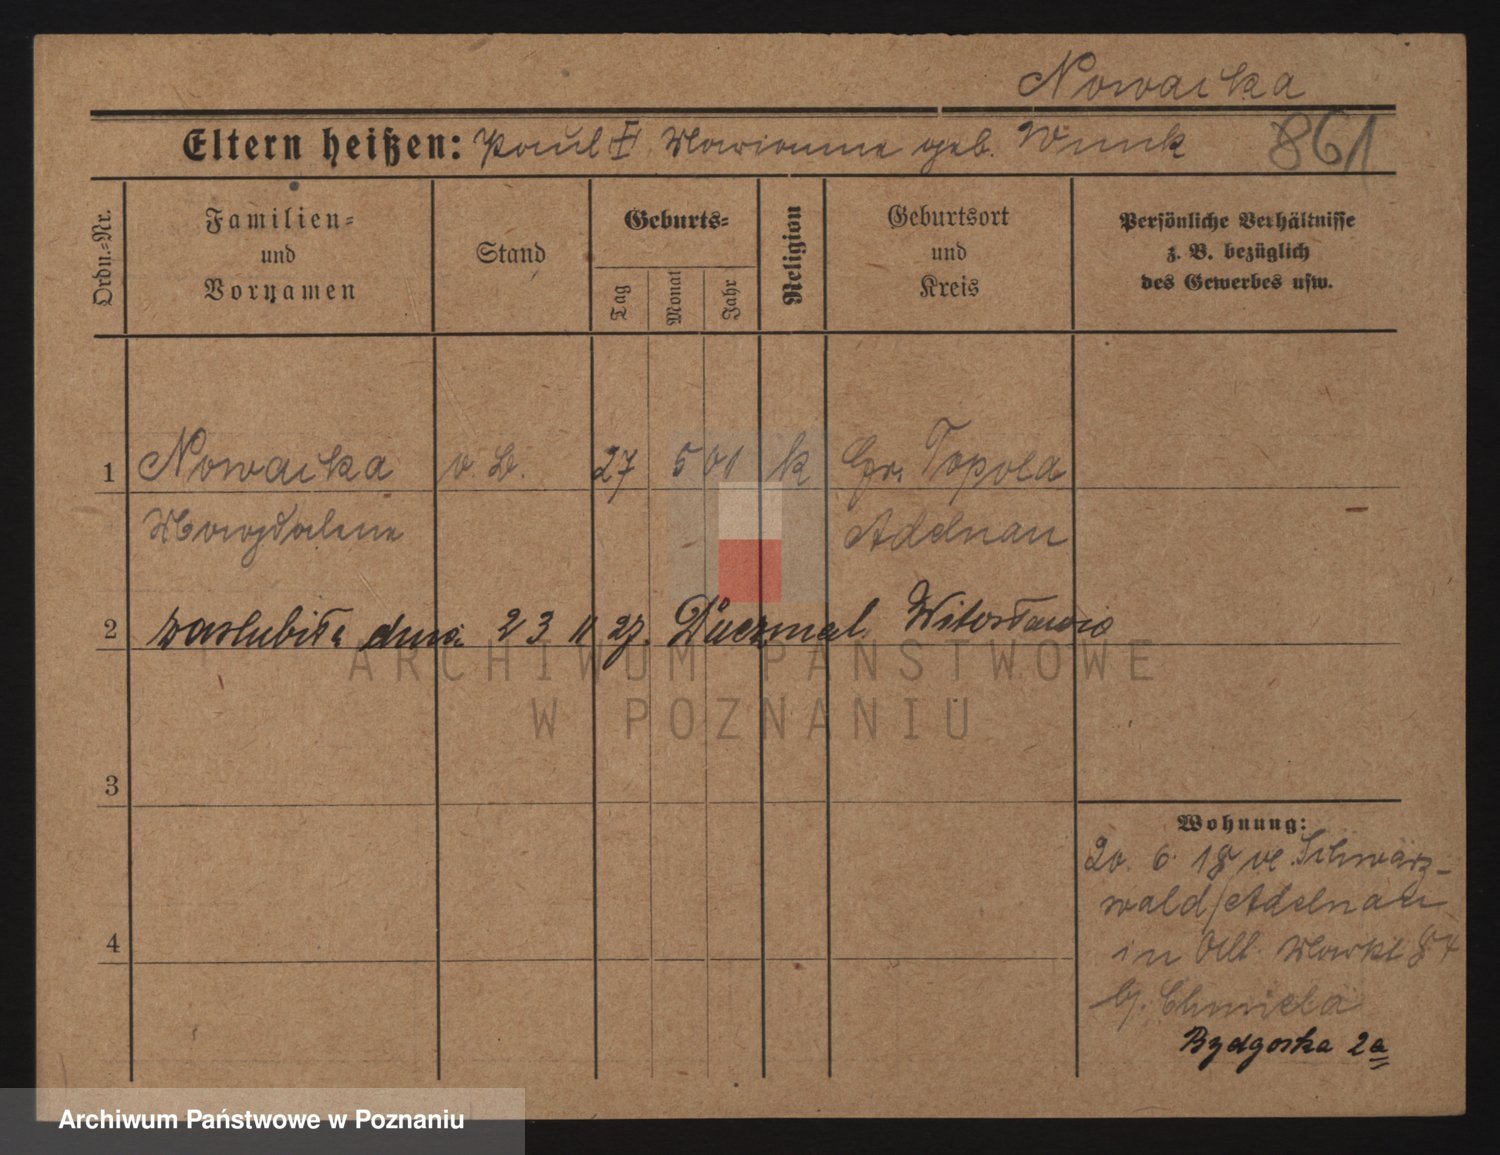 Nowacka
Eltern heißen: Paul II Marianne geb. Wnuk 861
Ordn.-Nr.
Familien-
und
Vornamen
Stand
Geburts-
Tag
Monat
Jahr
Religion
Geburtsort
und
Kreis
Persönliche Verhältnisse
z. B. bezüglich
des Gewerbes usw.
1 Nowacka o. B. 27 5 01 k Gr. Topola
Magdalene Adelnau
2 zaslubiła dnia 23 11 27. Daczmal Witosława
ARCHIWUM PAŃSTWOWE
W POZNANIU
3
Wohnung:
20. 6. 18 Schwarz-
wald/Adelnau
in Markt
4
b/. Chmiela
Bydgoska 2a
Archiwum Państwowe w Poznaniu